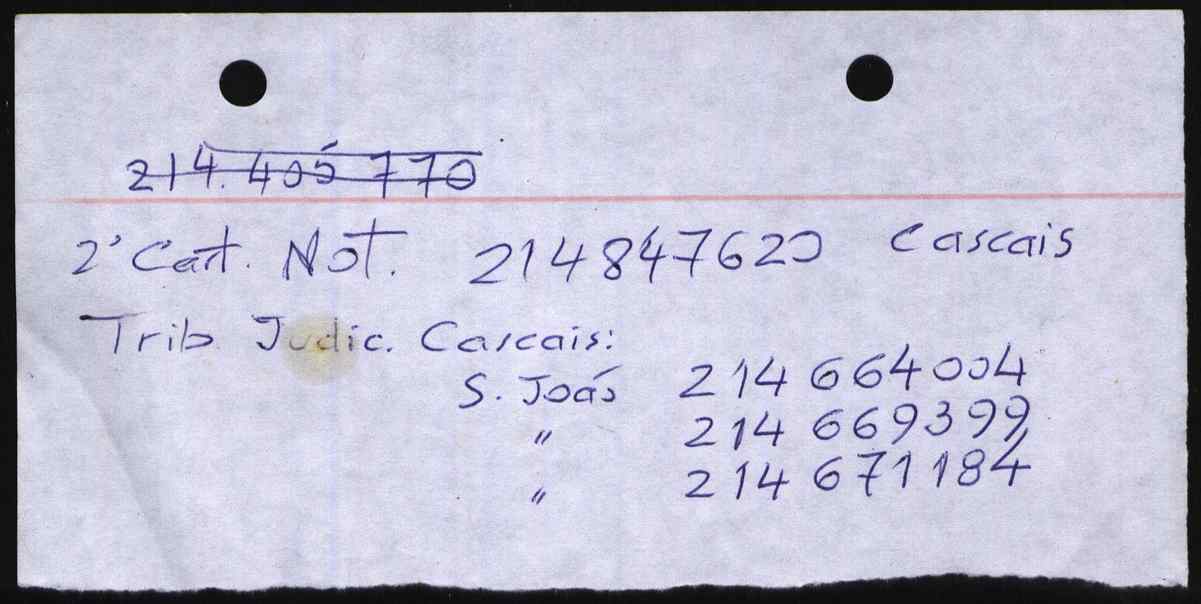 214.405 770
2º Cart. Not. 214847620 Cascais
Trib Judic. Cascais:
S. João 214 664004
" 214 669399
" 214 671184